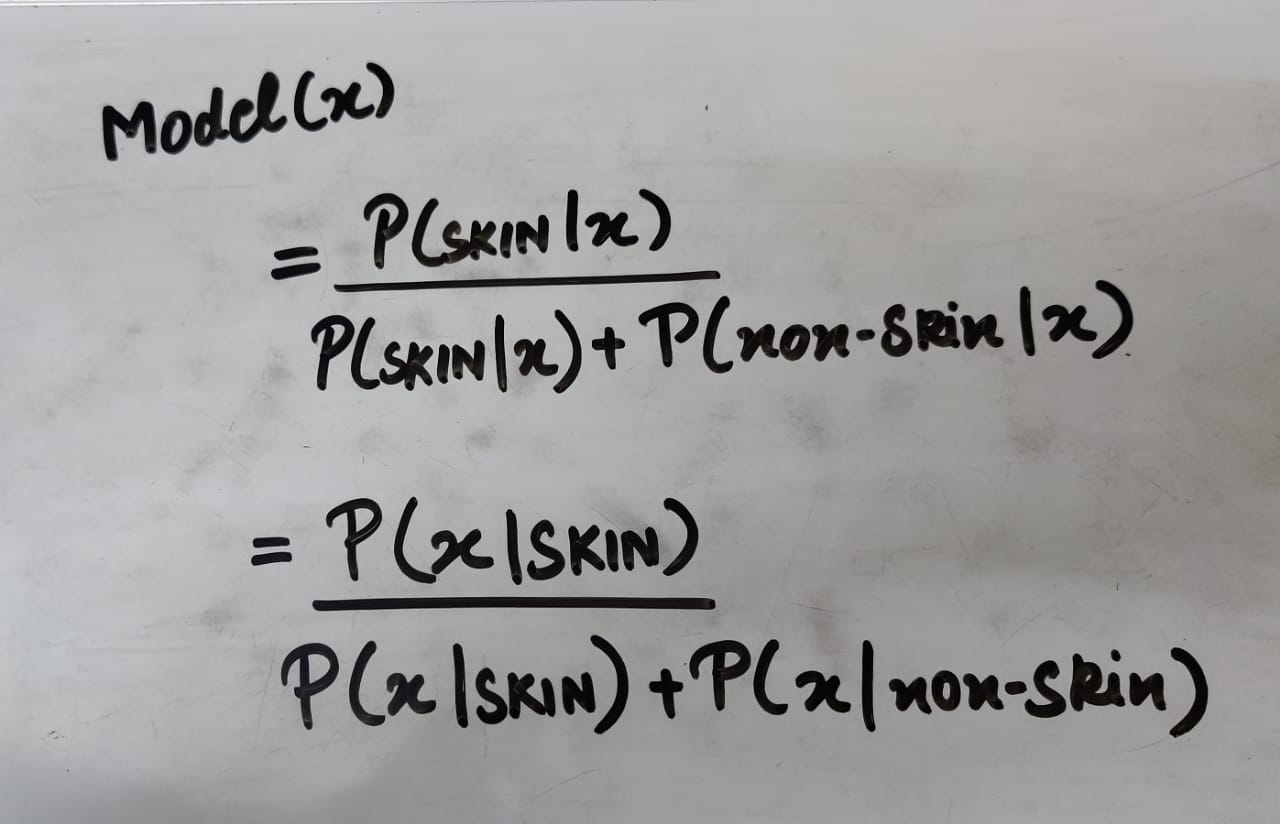 Model(x)
= P(SKIN|x)
P(SKIN|x) + P(non-skin|x)
= P(x|SKIN)
P(x|SKIN) + P(x|non-skin)